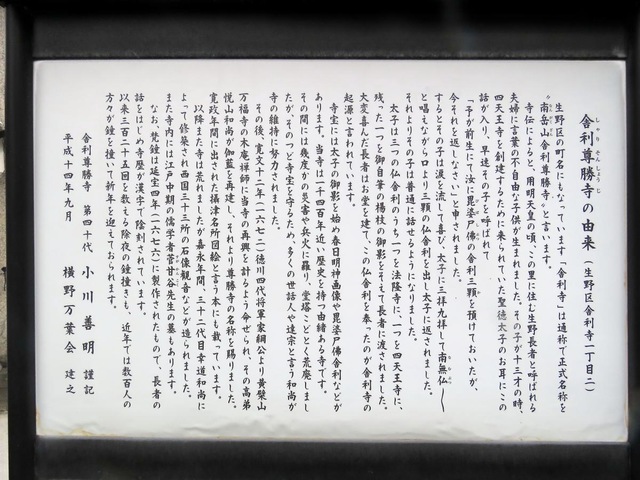 舎利尊勝寺の由来（生野区舎利寺一丁目二）
しゃりそんしょうじ
生野区の町名にもなっています「舎利寺」は通称で正式名称を
〝南岳山舎利尊勝寺〟と言います。
寺伝によると、用明天皇の頃、この里に住む生野長者と呼ばれる
夫婦に言葉の不自由な子供が生まれました。その子が十三才の時、
四天王寺を創建するために来られていた聖徳太子のお耳にこの
話が入り、早速その子を呼ばれて
「予が前生にて汝に毘婆尸佛の舎利三顆を預けておいたが、
今それを返しなさい」と申されました。
するとその子は涙を流して喜び、太子に三拝九拝して南無仏〜
と唱えながら、口より三顆の仏舎利を出し太子に返されました。
それよりその子は普通に話せるようになりました。
太子は三つの仏舎利のうち一つを法隆寺に、一つを四天王寺に、
残った一つを御自筆の楊枝の御影をそえて長者に渡されました。
大変喜んだ長者はお堂を建て、この仏舎利を奉ったのが舎利寺の
起源と言われています。
寺宝には太子の御影を始め春日明神画像や毘婆尸佛舎利などが
あります。当寺は一千四百年近い歴史を持つ由緒ある寺です。
その間には幾度かの災害や兵火に罹り、堂塔ことごとく荒廃しまし
たが、そのつど寺宝を守るため、多くの世話人や達宗と言う和尚が
寺の維持に努力されました。
その後、寛文十二年（一六七二）徳川四代将軍家綱公より黄檗山
万福寺の木庵禅師に当寺の再興を計るよう命ぜられ、その高弟
悦山和尚が伽藍を再建し、それより尊勝寺の名称を賜りました。
寛政年間に出された摂津名所図絵と言う本にも載っています。
以降また寺は荒れましたが嘉永年間、三十二代目幸道和尚に
よって修築され西国三十三所の石像観音などが造られました。
また寺内には江戸中期の儒学者菅甘谷先生の墓もあります。
なお、梵鐘は延宝四年（一六七六）に製作されたもので、長者の
話をはじめ寺歴が漢字で陰刻されています。
以来三百二十五回を数える除夜の鐘撞きも、近年では数百人の
方々が鐘を撞いて新年を迎えておられます。
舎利尊勝寺　第四十代　小川善明　謹記
平成十四年九月　横野万葉会　建之